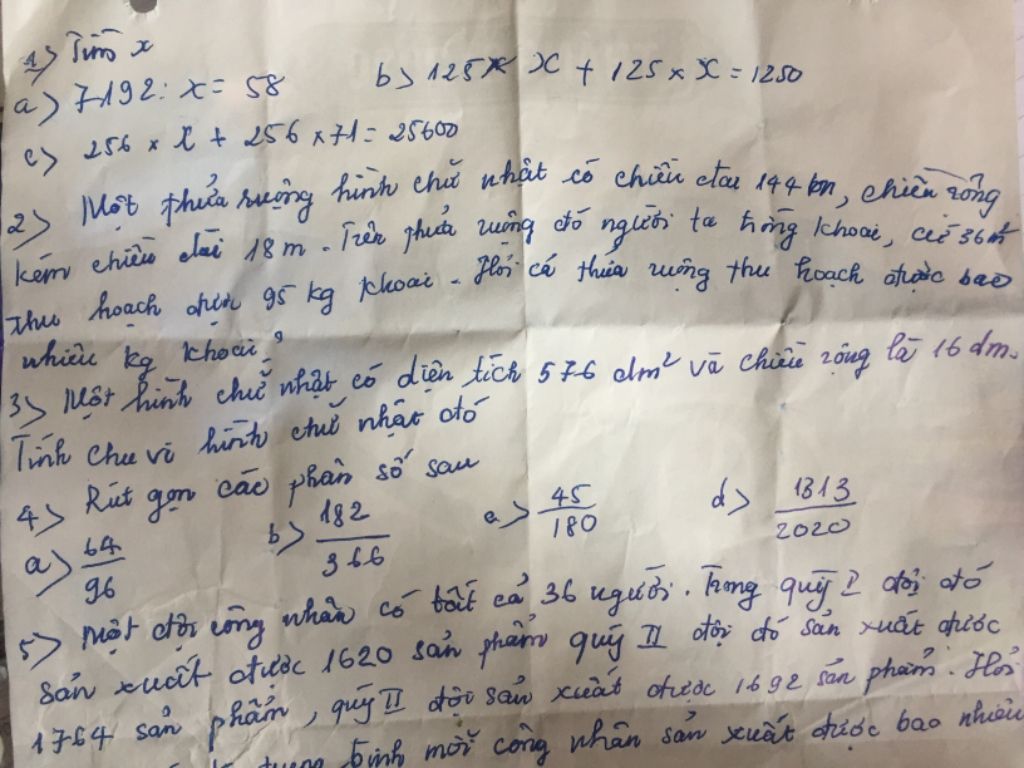 1> Tìm x
a> 7192 : x = 58 b> 125 x x + 125 x x = 1250
c> 256 x x + 256 x 71 = 25600
2> Một thửa ruộng hình chữ nhật có chiều dai 144 m, chiều rộng
kém chiều dài 18 m. Trên thửa ruộng đó người ta trồng khoai, cứ 36m²
thu hoạch được 95 kg khoai. Hỏi cả thửa ruộng thu hoạch được bao
nhiêu kg khoai?
3> Một hình chữ nhật có diện tích 576 dm² và chiều rộng là 16 dm.
Tính chu vi hình chữ nhật đó
4> Rút gọn các phân số sau
a> 64/96 b> 182/366 c> 45/180 d> 1313/2020
5> Một đội công nhân có tất cả 36 người. Trong quý I đội đó
sản xuất được 1620 sản phẩm quý II đội đó sản xuất được
1764 sản phẩm, quý II đội sản xuất được 1692 sản phẩm. Hỏi
trung bình mỗi công nhân sản xuất được bao nhiêu